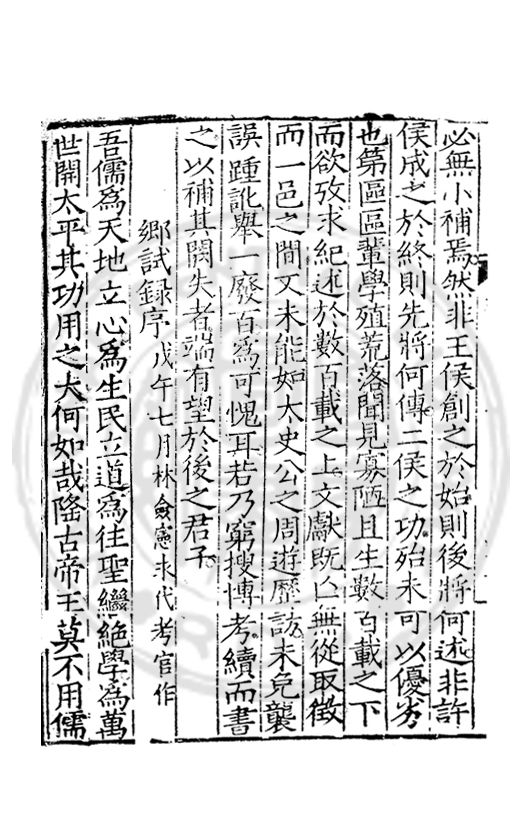 必無小補焉然非王侯創之於始則後將何述非許
侯成之於終則先將何傳二侯之功殆未可以優劣
也第區區輩學殖荒落聞見寡陋且生數百載之下
而欲攷求紀述於數百載之上文獻既亡無從取徵
而一邑之間又未能如太史公之周遊歷訪未免襲
誤踵訛舉一廢百為可愧耳若乃窮搜博考續而書
之以補其闕失者端有望於後之君子
鄉試錄序 戊午七月林僉憲求代考官作
吾儒為天地立心為生民立道為往聖繼絕學為萬
世開太平其功用之大何如哉隆古帝王莫不用儒